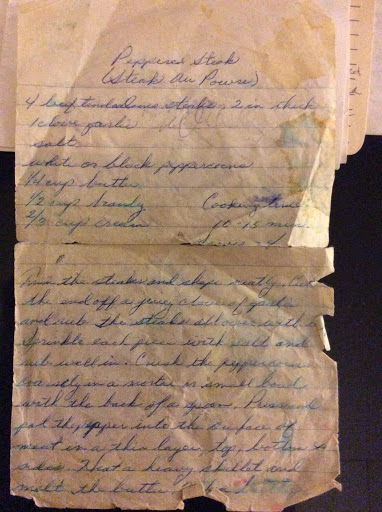 Peppered Steak
(Steak Au Poivre)
4 beef tenderloins steaks 2 in thick
1 clove garlic
salt
white or black peppercorns
1/4 cup butter
1/2 cup brandy Cooking time
2/3 cup cream 10-15 min.
Trim the steaks and shape neatly. Cut
the end off a juicy clove of garlic
and rub the steaks all over with
Sprinkle each piece with salt and
rub well in. Crush the peppercorns
coarsely in a mortar or small bowl
with the back of a spoon. Press and
pat the pepper into the surface of
meat in a thin layer, top, bottom &
sides. Heat a heavy skillet and
melt the butter.